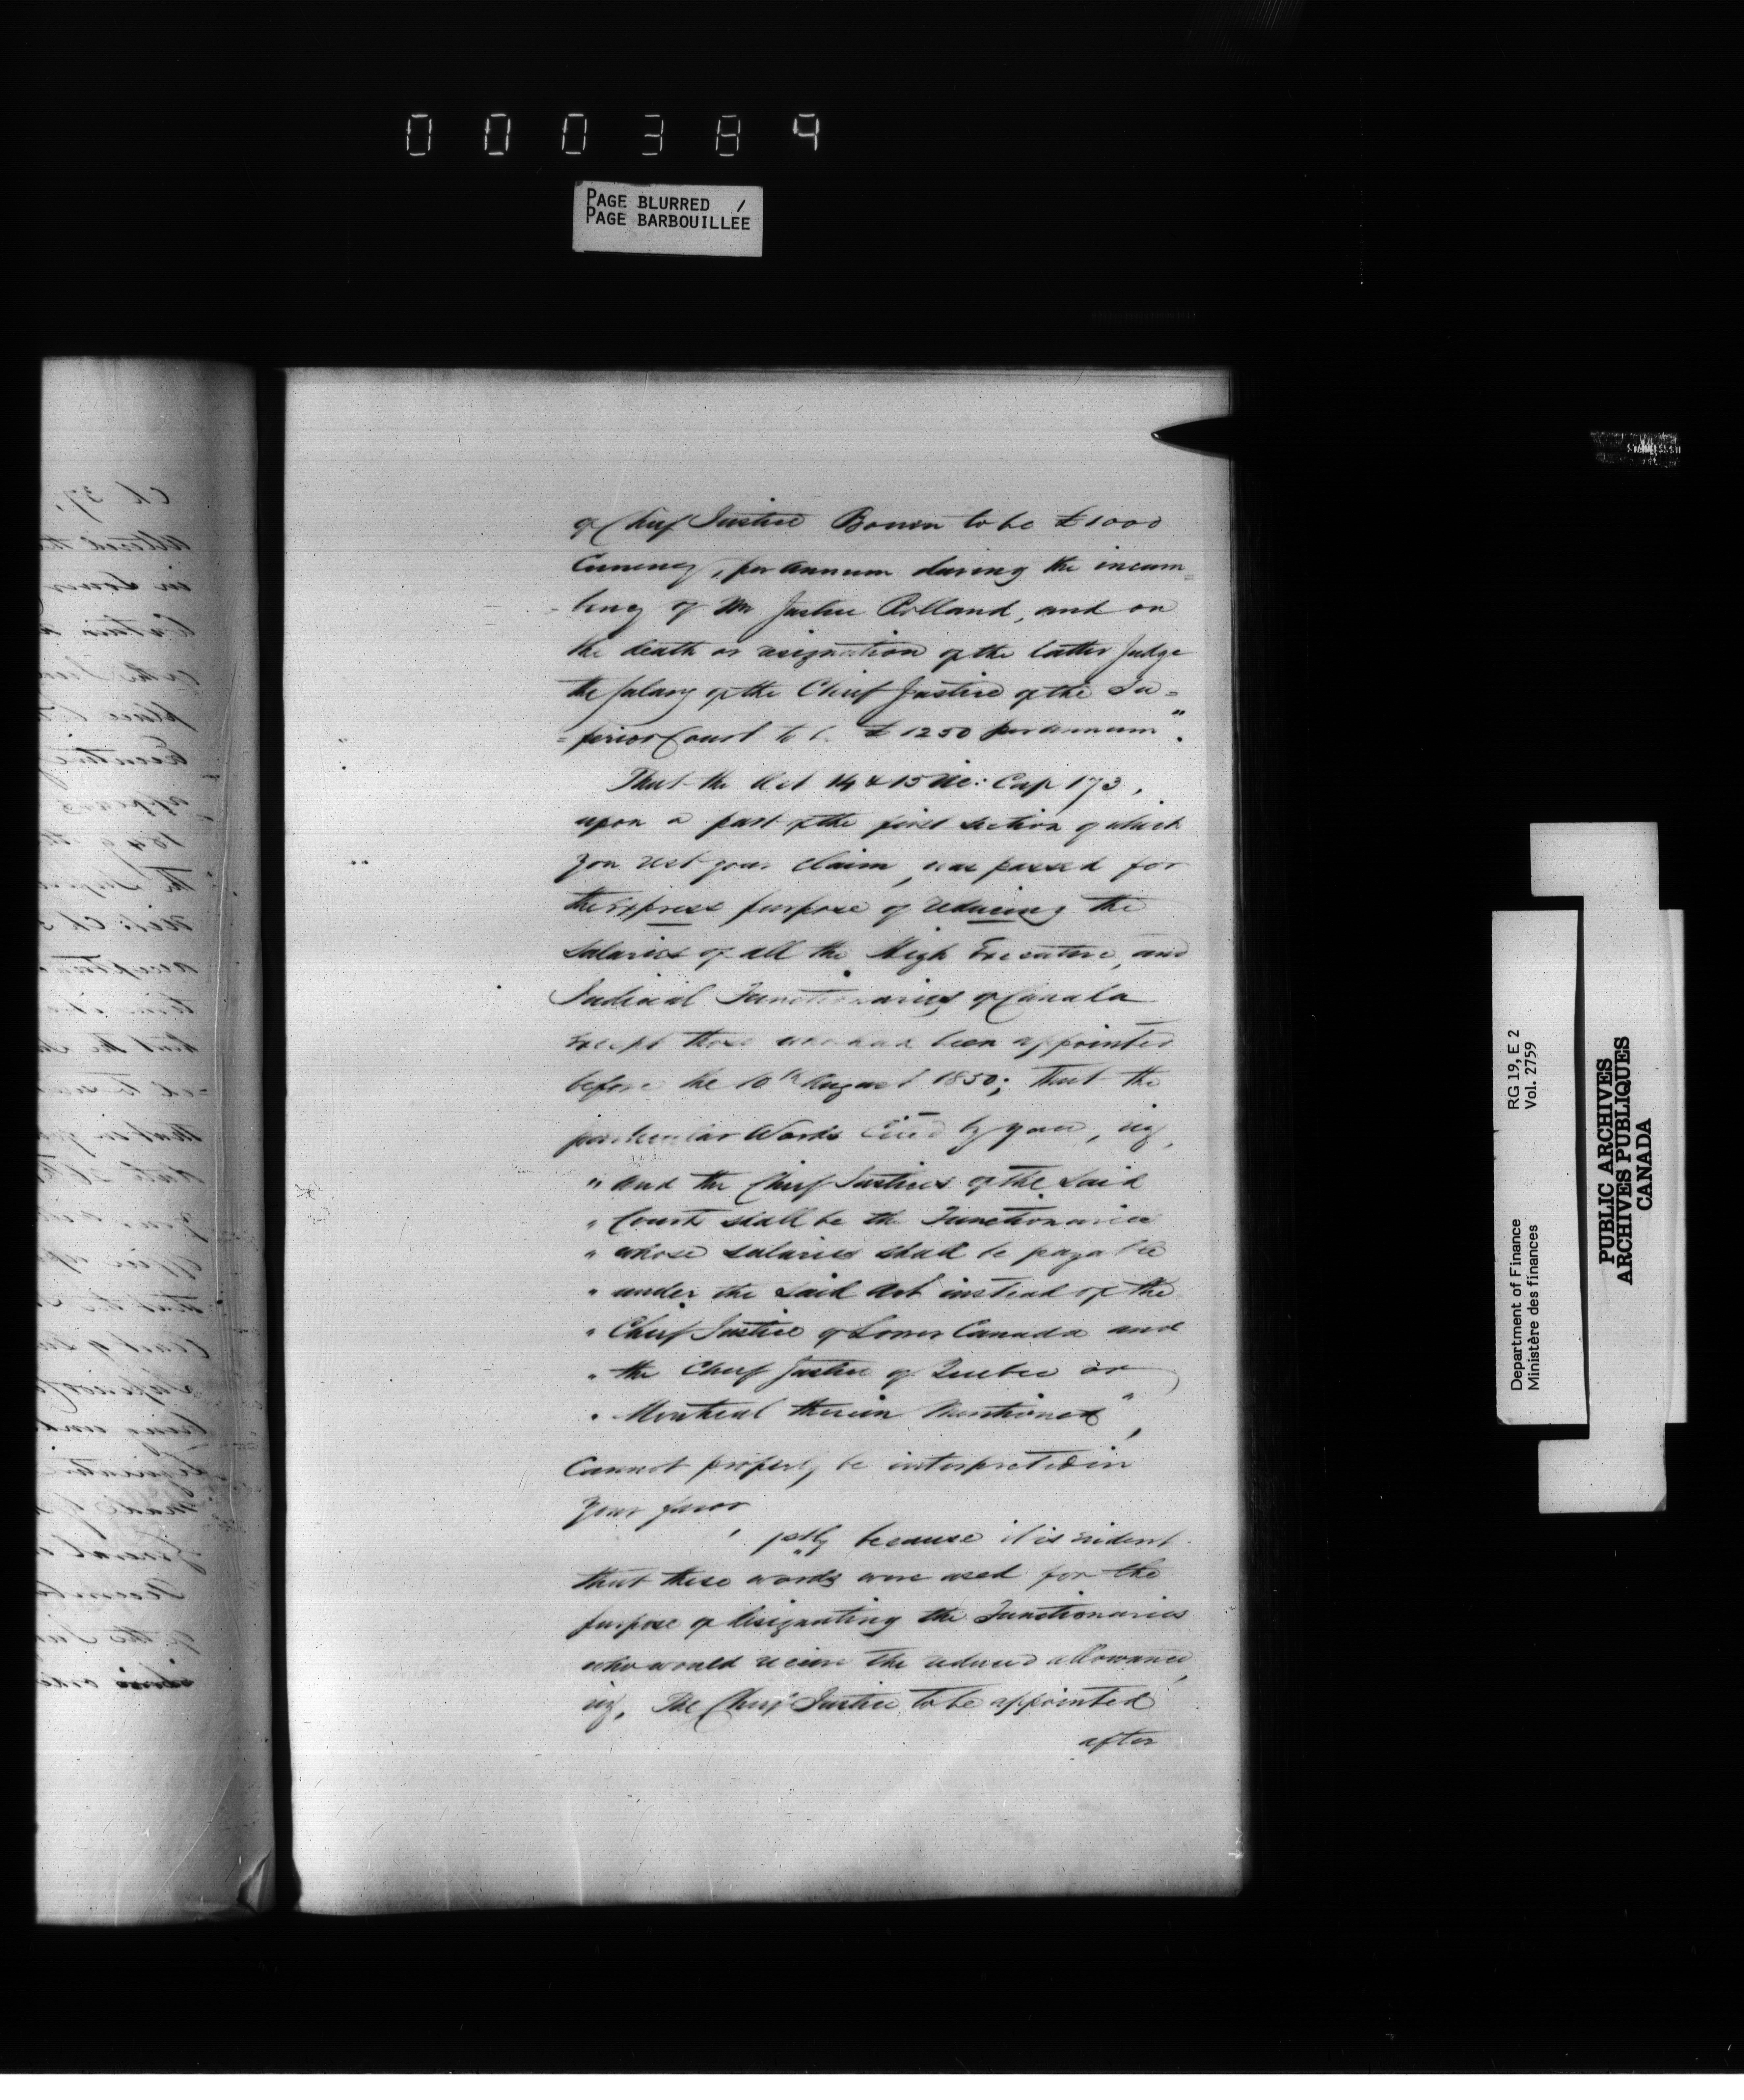 000384
PAGE BLURRED /
PAGE BARBOUILLEE
of Chief Justice Bowen to be £1000
Currency, per Annum during the incum=
-bency of Mr Justice Rolland, and on
the death or resignation of the latter Judge
the Salary of the Chief Justice of the Su=
=perior Court to b £1250 per annum".
That the Act 14 & 15 Vic: Cap 173,
upon a part of the first section of which
you rest your claim, was passed for
the express purpose of reducing the
Salaries of all the High Executive, and
Judicial Functionaries of Canada
except those who had been appointed
before the 10th August 1850; that the
particular Words Cited by you, viz,
" And the Chief Justices of the Said
" Courts shall be the Functionaries
" whose salaries shall be payable
" under the Said Act instead of the
" Chief Justice of Lower Canada and
" the Chief Justice of Quebec or
" Montreal therein Mentioned",
Cannot properly be interpreted in
Your favor,
1stly because it is evident
that these words were used for the
purpose of designating the Functionaries
who would receive the reduced allowance,
viz, The Chief Justice to be appointed
after
Ch 37,
altered the
in Lower
1849
RG 19, E 2
Vol. 2759
Department of Finance
Ministère des finances
PUBLIC ARCHIVES
ARCHIVES PUBLIQUES
CANADA